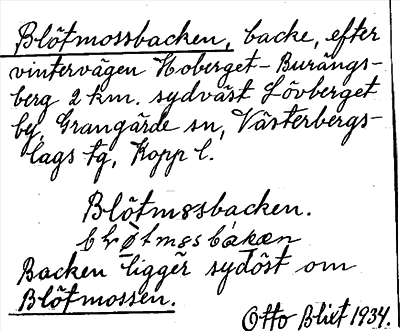 Blötmossbacken, backe, efter
vintervägen Hoberget - Burängs-
berg 2 km. sydväst Lövberget
by, Grangärde sn, Västerbergs-
lags tg, Kopp l.
Blötmosbacken.
Backen ligger sydöst om
Blötmossen.
Otto Blixt 1934.